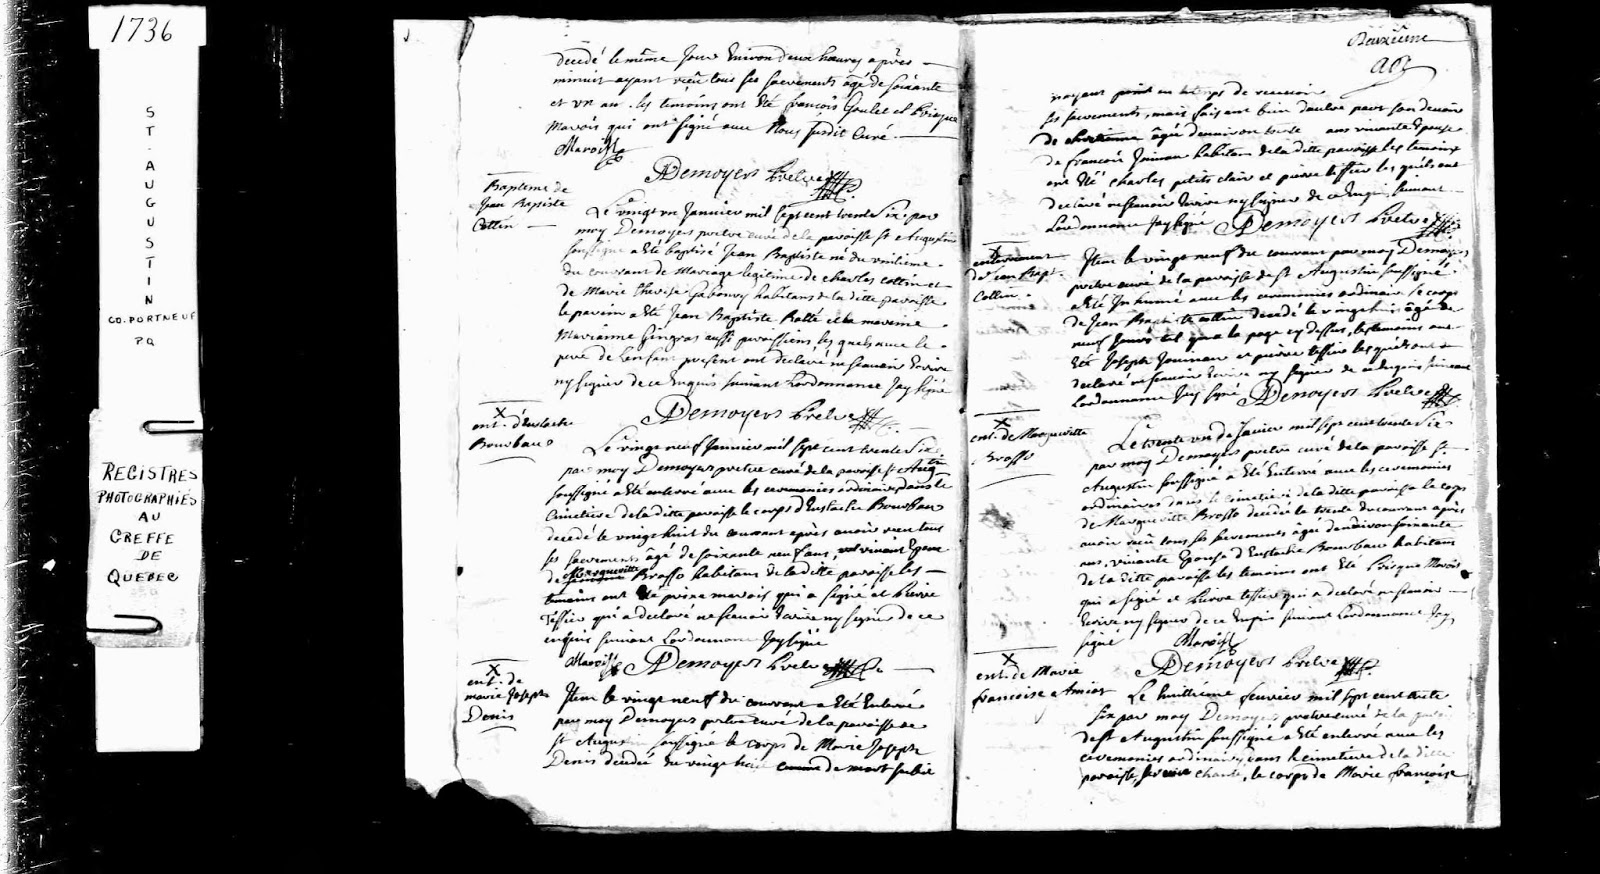 1736
ST. AUGUSTIN
CO. PORTNEUF
PQ
REGISTRES
PHOTOGRAPHIÉS
AU
GREFFE
DE
QUEBEC
décédé le même jour Environ deux heures après
minuit ayant reçu tous ses sacrements âgé de soixante
et un an. les temoins ont été françois Goulet et
Marois qui ont signé avec Nous susdit Curé.
Marois
Demoyers Prêtre
Baptême de
Jean Baptiste
Cottin
Le vingt un Janvier mil sept cent trente Six par
moy Demoyers prêtre curé de la paroisse st Augustin
soussigné a été baptisé Jean Baptiste né du
du courant de Mariage legitime de charles cottin et
de Marie Therese Gaboury habitans de la ditte paroisse
le parein a été Jean Baptiste Ratté et la mareine
Marianne Gingras aussi paroissiens, les quels avec le
pere de Lenfant present ont declaré ne scavoir Ecrire
ny signer de ce Enquis suivant Lordonnance Jay signé
Demoyers Prêtre
X
ent. d'Eustache
Bourbau
Le vingt neuf Janvier mil sept cent trente Six
par moy Demoyers pretre curé de la paroisse st Augtin
soussigné a été enterré avec les ceremonies ordinaires dans le
Cimetiere de la ditte paroisse le corps d'Eustache Bourbau
decedé le vingt huit du courant après avoir reçu tous
ses sacrements âgé de soixante neuf ans, vivant Epoux
de Margueritte Brosso habitans de la ditte paroisse les
temoins ont été marois qui a signé et Pierre
Tessier qui a declaré ne scavoir Ecrire ny signer de ce
enquis suivant Lordonnance Jay signé
Marois Demoyers Prêtre
X
ent. de
marie Joseph
Denis
Item le vingt neuf du courrant a été Enterré
par moy Demoyers pretre curé de la paroisse de
st Augustin soussigné le corps de Marie Joseph
Denis decedée du vingt huit comme de mort subite
Deuxième
nayant point eu temps de recevoir
ses sacrements, mais faisant bien dautre part son devoir
de chretienne âgée denviron ans vivante Epouse
de francois habitans de la ditte paroisse les temoins
ont été charles petit clair et pierre tessier les quels ont
declaré ne scavoir Ecrire ny signer de ce Enquis suivant
Lordonnance Jay signé Demoyers Prêtre
X
enterrement
de Jean Bapt.
Cottin.
Item le vingt neuf du courant par moy Demoyers
pretre curé de la paroisse de st Augustin soussigné
a été Inhumé avec les ceremonies ordinaire le corps
de Jean Baptiste cottin decedé le vingt huit âgé de
neuf jours tel que a la page cy dessus, les temoins ont
été Joseph et pierre tessier les quels ont
declaré ne scavoir Ecrire ny signer de ce Enquis suivant
Lordonnance Jay signé Demoyers Prêtre
X
ent. de Margueritte
Brosso
Le trente un de Janvier mil sept cent trente Six
par moy Demoyers pretre curé de la paroisse st
Augustin soussigné a été Enterré avec les ceremonies
ordinaires dans le cimetiere de la ditte paroisse le corps
de Margueritte Brosso decedée le trente du courant après
avoir reçu tous ses sacrements âgée denviron soixante
ans, vivante Epouse d'Eustache Bourbau habitans
de la ditte paroisse les temoins ont été Marois
qui a signé et Pierre tessier qui a declaré ne scavoir
Ecrire ny signer de ce Enquis suivant Lordonnance Jay
signé Marois
Demoyers Prêtre
X
ent. de Marie
francoise Amiot
Le huitième fevrier mil sept cent trente
six par moy Demoyers pretre curé de la
de st Augustin soussigné a été enterré avec les
ceremonies ordinaires dans le cimetiere de la ditte
paroisse, chanté, le corps de Marie francoise